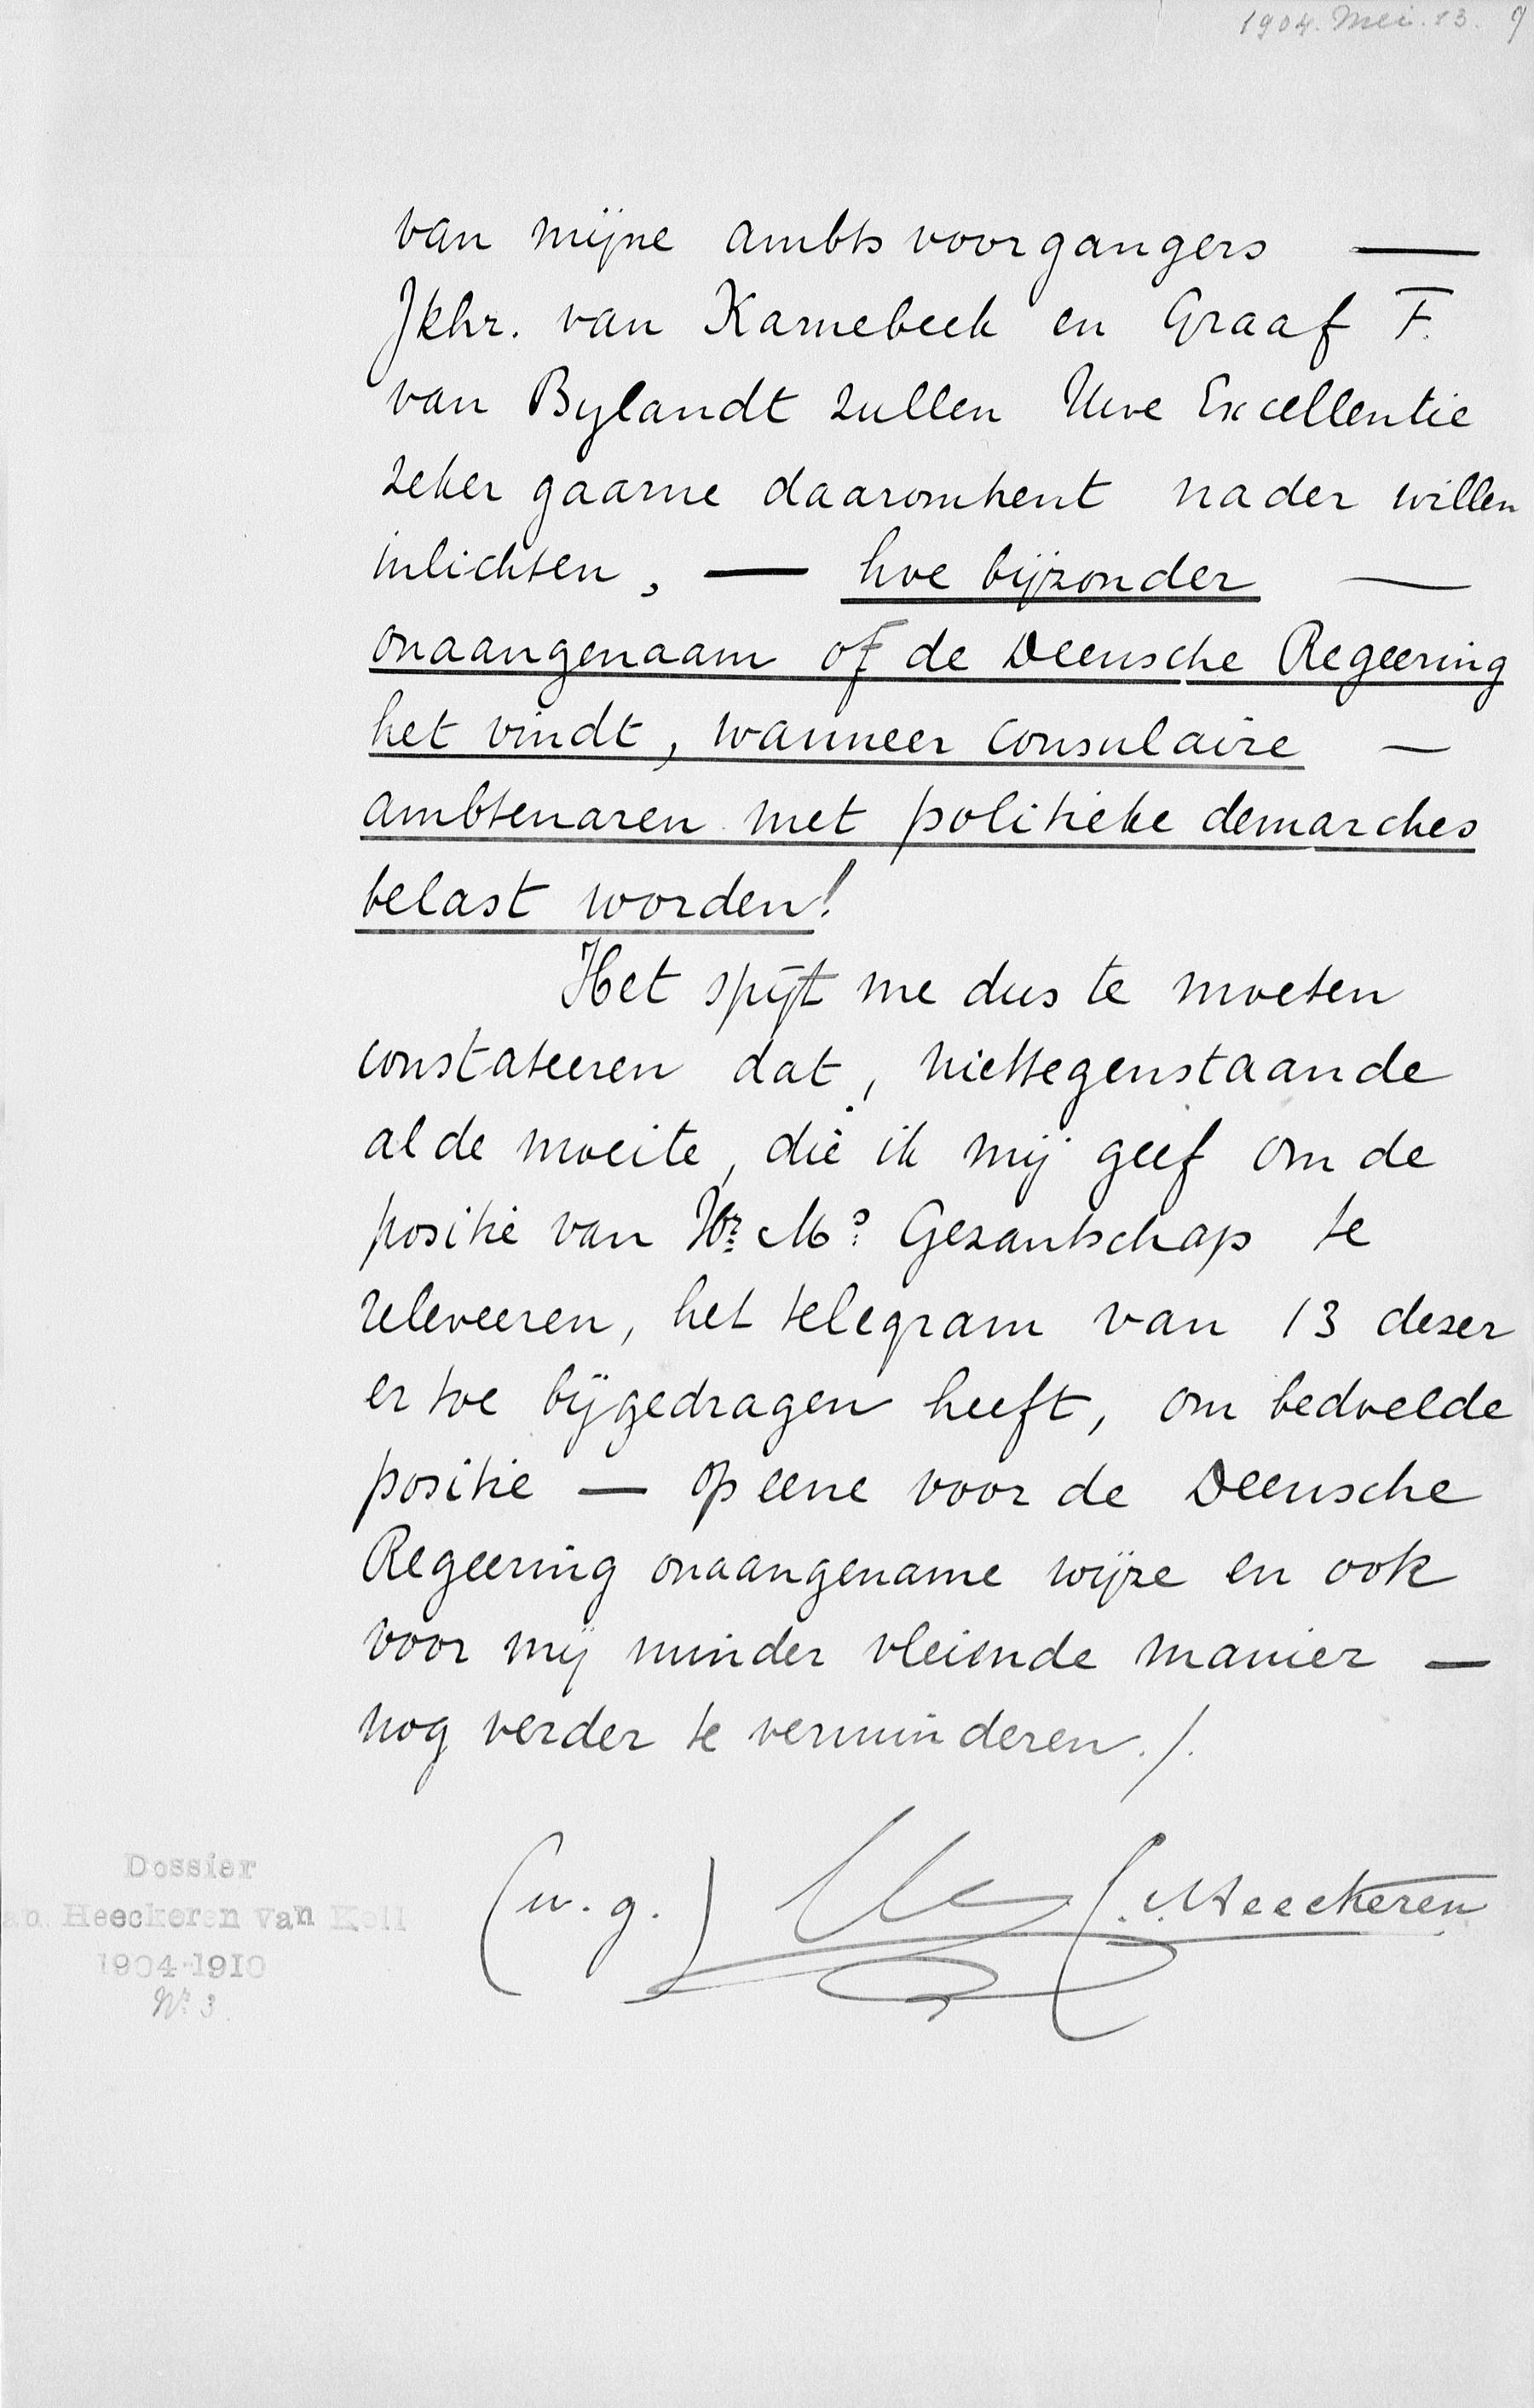 1904. Mei. 13. 9
van mijne ambtsvoorgangers —
Jkhr. van Karnebeek en Graaf F.
van Bylandt zullen Uwe Excellentie
zeker gaarne daaromtrent nader willen
inlichten, — hoe bijzonder —
onaangenaam of de Deensche Regeering
het vindt, wanneer consulaire —
ambtenaren met politieke demarches
belast worden!
Het spijt me dus te moeten
constateeren dat, niettegenstaande
al de moeite, die ik mij geef om de
positie van Hr. Ms. Gezantschap te
releveeren, het telegram van 13 dezer
er toe bijgedragen heeft, om bedoelde
positie — op eene voor de Deensche
Regeering onaangename wijze en ook
voor mij minder vleiende manier —
nog verder te verminderen./.
(w.g.) v. Heeckeren
Dossier
Heeckeren van Kell
1904-1910
No 3.